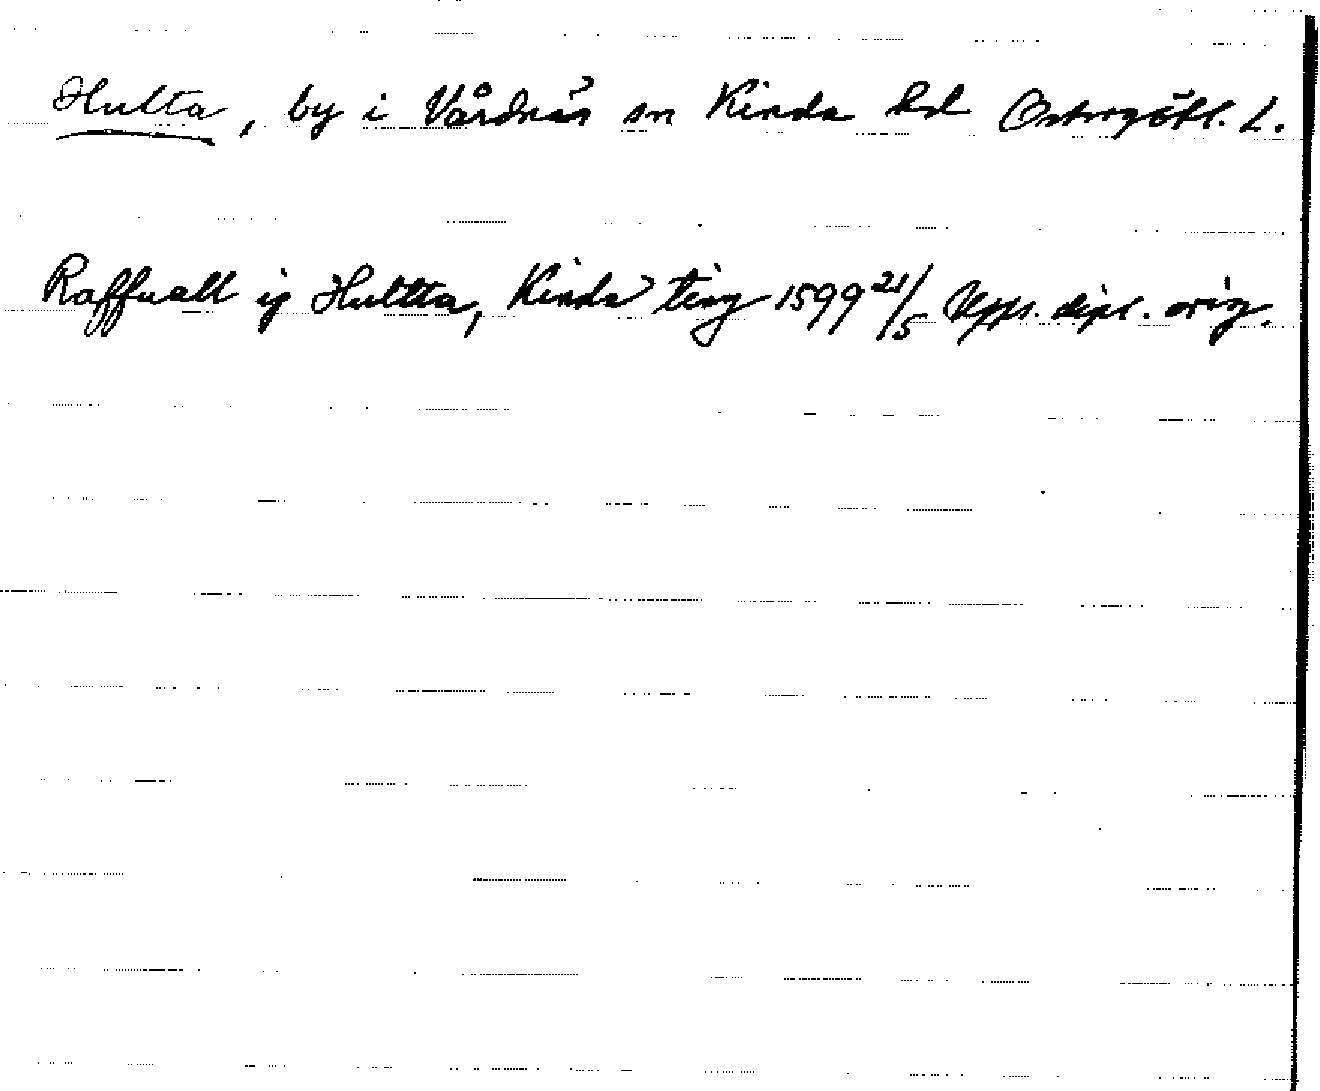 Hulta, by i Vårdnäs sn Kinda hd Östergötl. L.
Raffuall ij Hultta, Kinda ting 1599 21/5 Upps. dipl. orig.